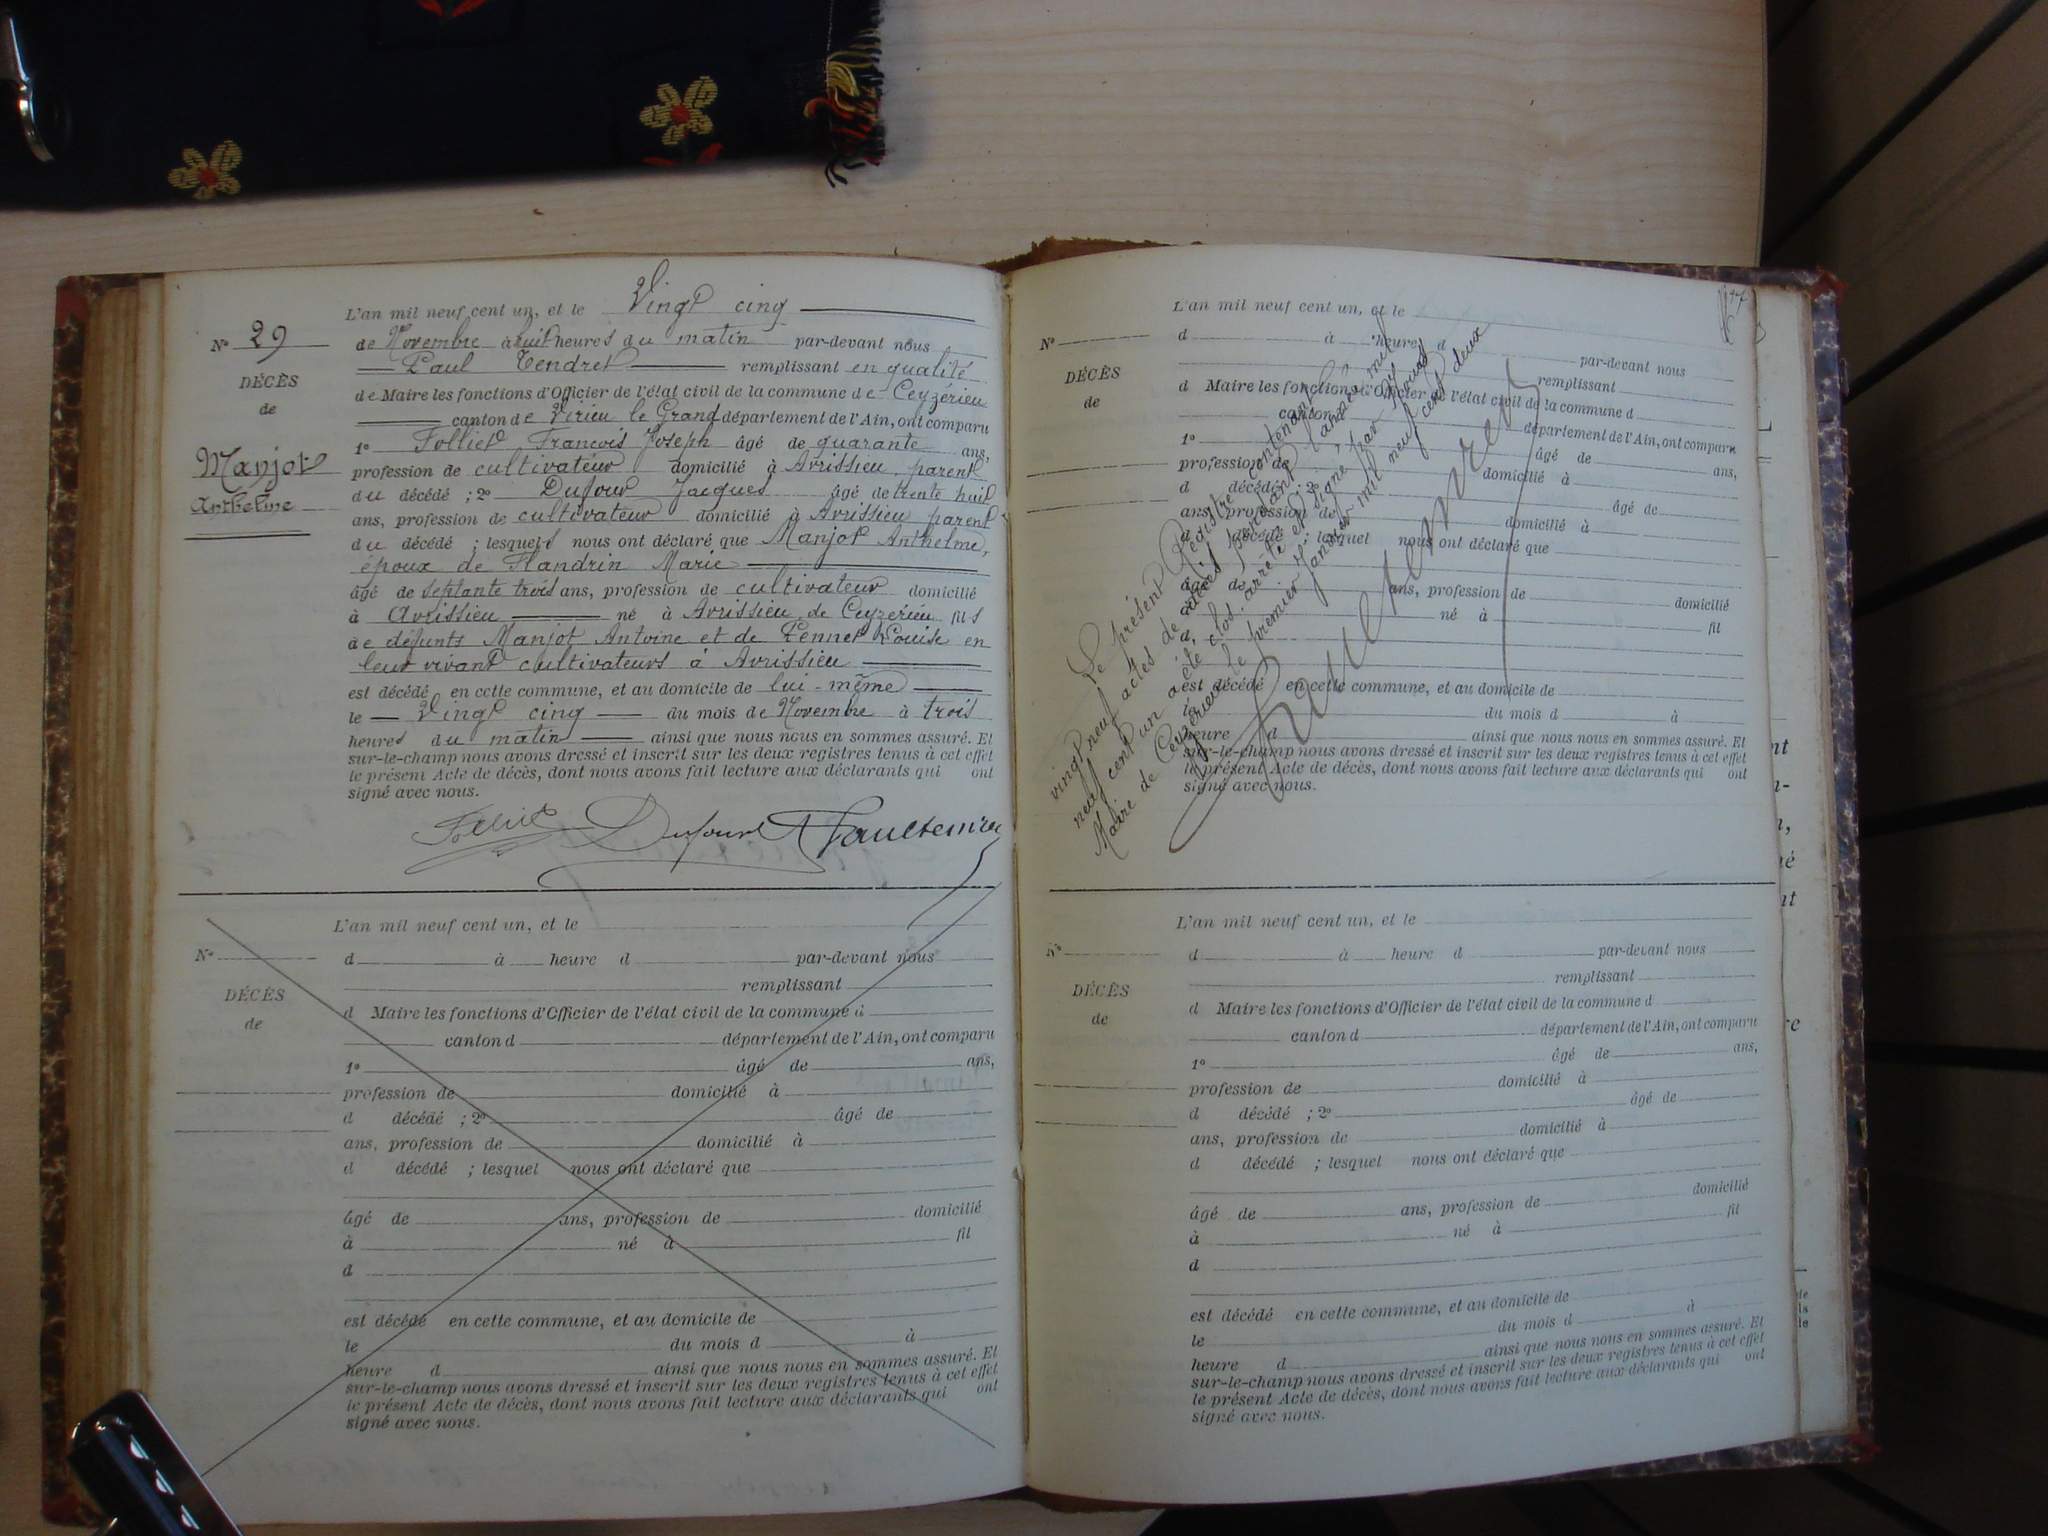 L'an mil neuf cent un, et le Vingt cinq
N° 29
de Novembre à huit heures du matin par-devant nous
Paul Tendret remplissant en qualité
DÉCÈS
de Maire les fonctions d'Officier de l'état civil de la commune de Ceyzérieu
de
canton de Virieu le Grand département de l'Ain, ont comparu
1° Folliet François Joseph âgé de quarante ans,
Manjot
profession de cultivateur domicilié à Avrissieu, parent
du décédé ; 2° Dufour Jacques âgé de trente huit
Anthelme
ans, profession de cultivateur domicilié à Avrissieu parent
du décédé ; lesquels nous ont déclaré que Manjot Anthelme,
époux de Flandrin Marie
âgé de septante trois ans, profession de cultivateur domicilié
à Avrissieu né à Avrissieu de Ceyzérieu fils
de défunts Manjot Antoine et de Pennet Louise en
leur vivant cultivateurs à Avrissieu
est décédé en cette commune, et au domicile de lui-même
le Vingt cinq du mois de Novembre à trois
heures du matin ainsi que nous nous en sommes assuré. Et
sur-le-champ nous avons dressé et inscrit sur les deux registres tenus à cet effet
le présent Acte de décès, dont nous avons fait lecture aux déclarants qui ont
signé avec nous.
Folliet Dufour
L'an mil neuf cent un, et le
N°
d à heure d par-devant nous
remplissant
DÉCÈS
d Maire les fonctions d'Officier de l'état civil de la commune d
de
canton d département de l'Ain, ont comparu
1° âgé de ans,
profession de domicilié à
d décédé ; 2° âgé de
ans, profession de domicilié à
d décédé ; lesquel nous ont déclaré que
âgé de ans, profession de domicilié
à né à fil
d
est décédé en cette commune, et au domicile de
le du mois d à
heure d ainsi que nous nous en sommes assuré. Et
sur-le-champ nous avons dressé et inscrit sur les deux registres tenus à cet effet
le présent Acte de décès, dont nous avons fait lecture aux déclarants qui ont
signé avec nous.
L'an mil neuf cent un, et le
N°
d à heure d par-devant nous
remplissant
DÉCÈS
d Maire les fonctions d'Officier de l'état civil de la commune d
de
canton d département de l'Ain, ont comparu
1° âgé de ans,
profession de domicilié à
d décédé ; 2° âgé de
ans, profession de domicilié à
d décédé ; lesquel nous ont déclaré que
âgé de ans, profession de domicilié
à né à fil
d
est décédé en cette commune, et au domicile de
le du mois d à
heure d ainsi que nous nous en sommes assuré. Et
sur-le-champ nous avons dressé et inscrit sur les deux registres tenus à cet effet
le présent Acte de décès, dont nous avons fait lecture aux déclarants qui ont
signé avec nous.
Le présent Registre contenant
vingt neuf actes de décès pendant l'année mil
neuf cent un a été clos, arrêté et signé par Nous
Maire de Ceyzérieu le premier Janvier mil neuf cent deux
L'an mil neuf cent un, et le
N°
d à heure d par-devant nous
remplissant
DÉCÈS
d Maire les fonctions d'Officier de l'état civil de la commune d
de
canton d département de l'Ain, ont comparu
1° âgé de ans,
profession de domicilié à
d décédé ; 2° âgé de
ans, profession de domicilié à
d décédé ; lesquel nous ont déclaré que
âgé de ans, profession de domicilié
à né à fil
d
est décédé en cette commune, et au domicile de
le du mois d à
heure d ainsi que nous nous en sommes assuré. Et
sur-le-champ nous avons dressé et inscrit sur les deux registres tenus à cet effet
le présent Acte de décès, dont nous avons fait lecture aux déclarants qui ont
signé avec nous.